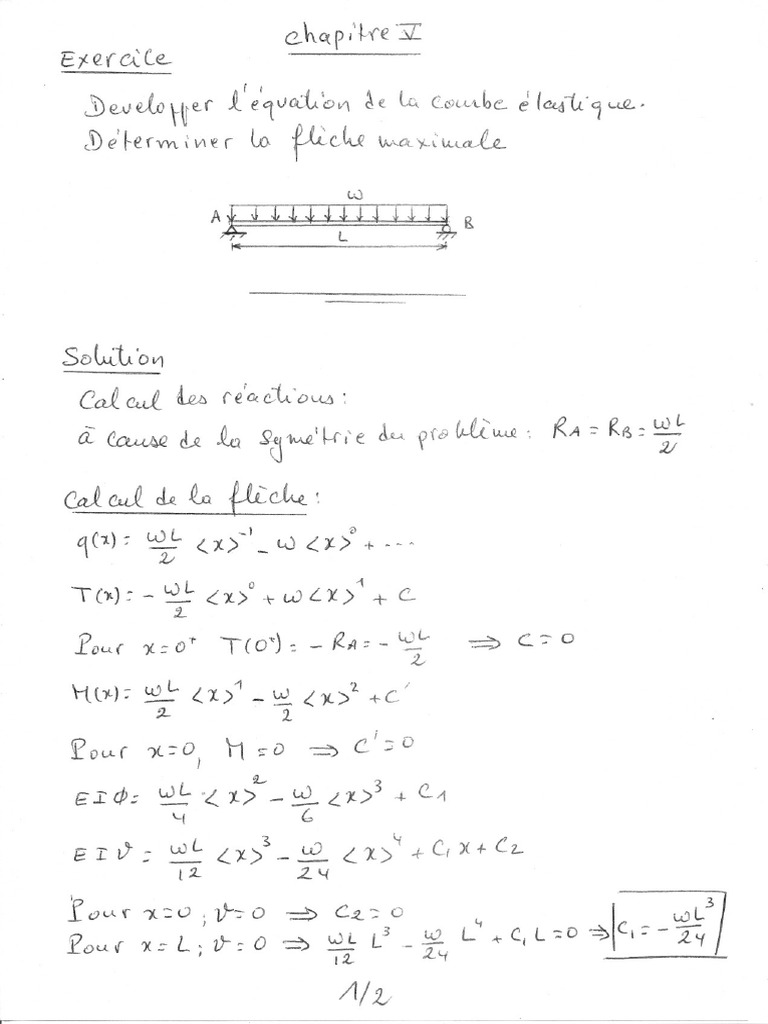 Chapitre V
Exercice
Developper l'équation de la courbe élastique.
Déterminer la flèche maximale
ω
A
B
L
Solution
Calcul des réactions:
à cause de la symétrie du problème: RA = RB = ωL/2
Calcul de la flèche:
q(x) = ωL/2 <x>⁻¹ - ω <x>⁰ + ...
T(x) = - ωL/2 <x>⁰ + ω<x>¹ + C
Pour x=0⁺ T(0⁺) = - RA = - ωL/2 ⇒ C=0
M(x) = ωL/2 <x>¹ - ω/2 <x>² + C'
Pour x=0, M=0 ⇒ C'=0
EIΦ = ωL/4 <x>² - ω/6 <x>³ + C1
EIv = ωL/12 <x>³ - ω/24 <x>⁴ + C1x + C2
Pour x=0; v=0 ⇒ C2=0
Pour x=L; v=0 ⇒ ωL/12 L³ - ω/24 L⁴ + C1L=0 ⇒ C1 = - ωL³/24
1/2